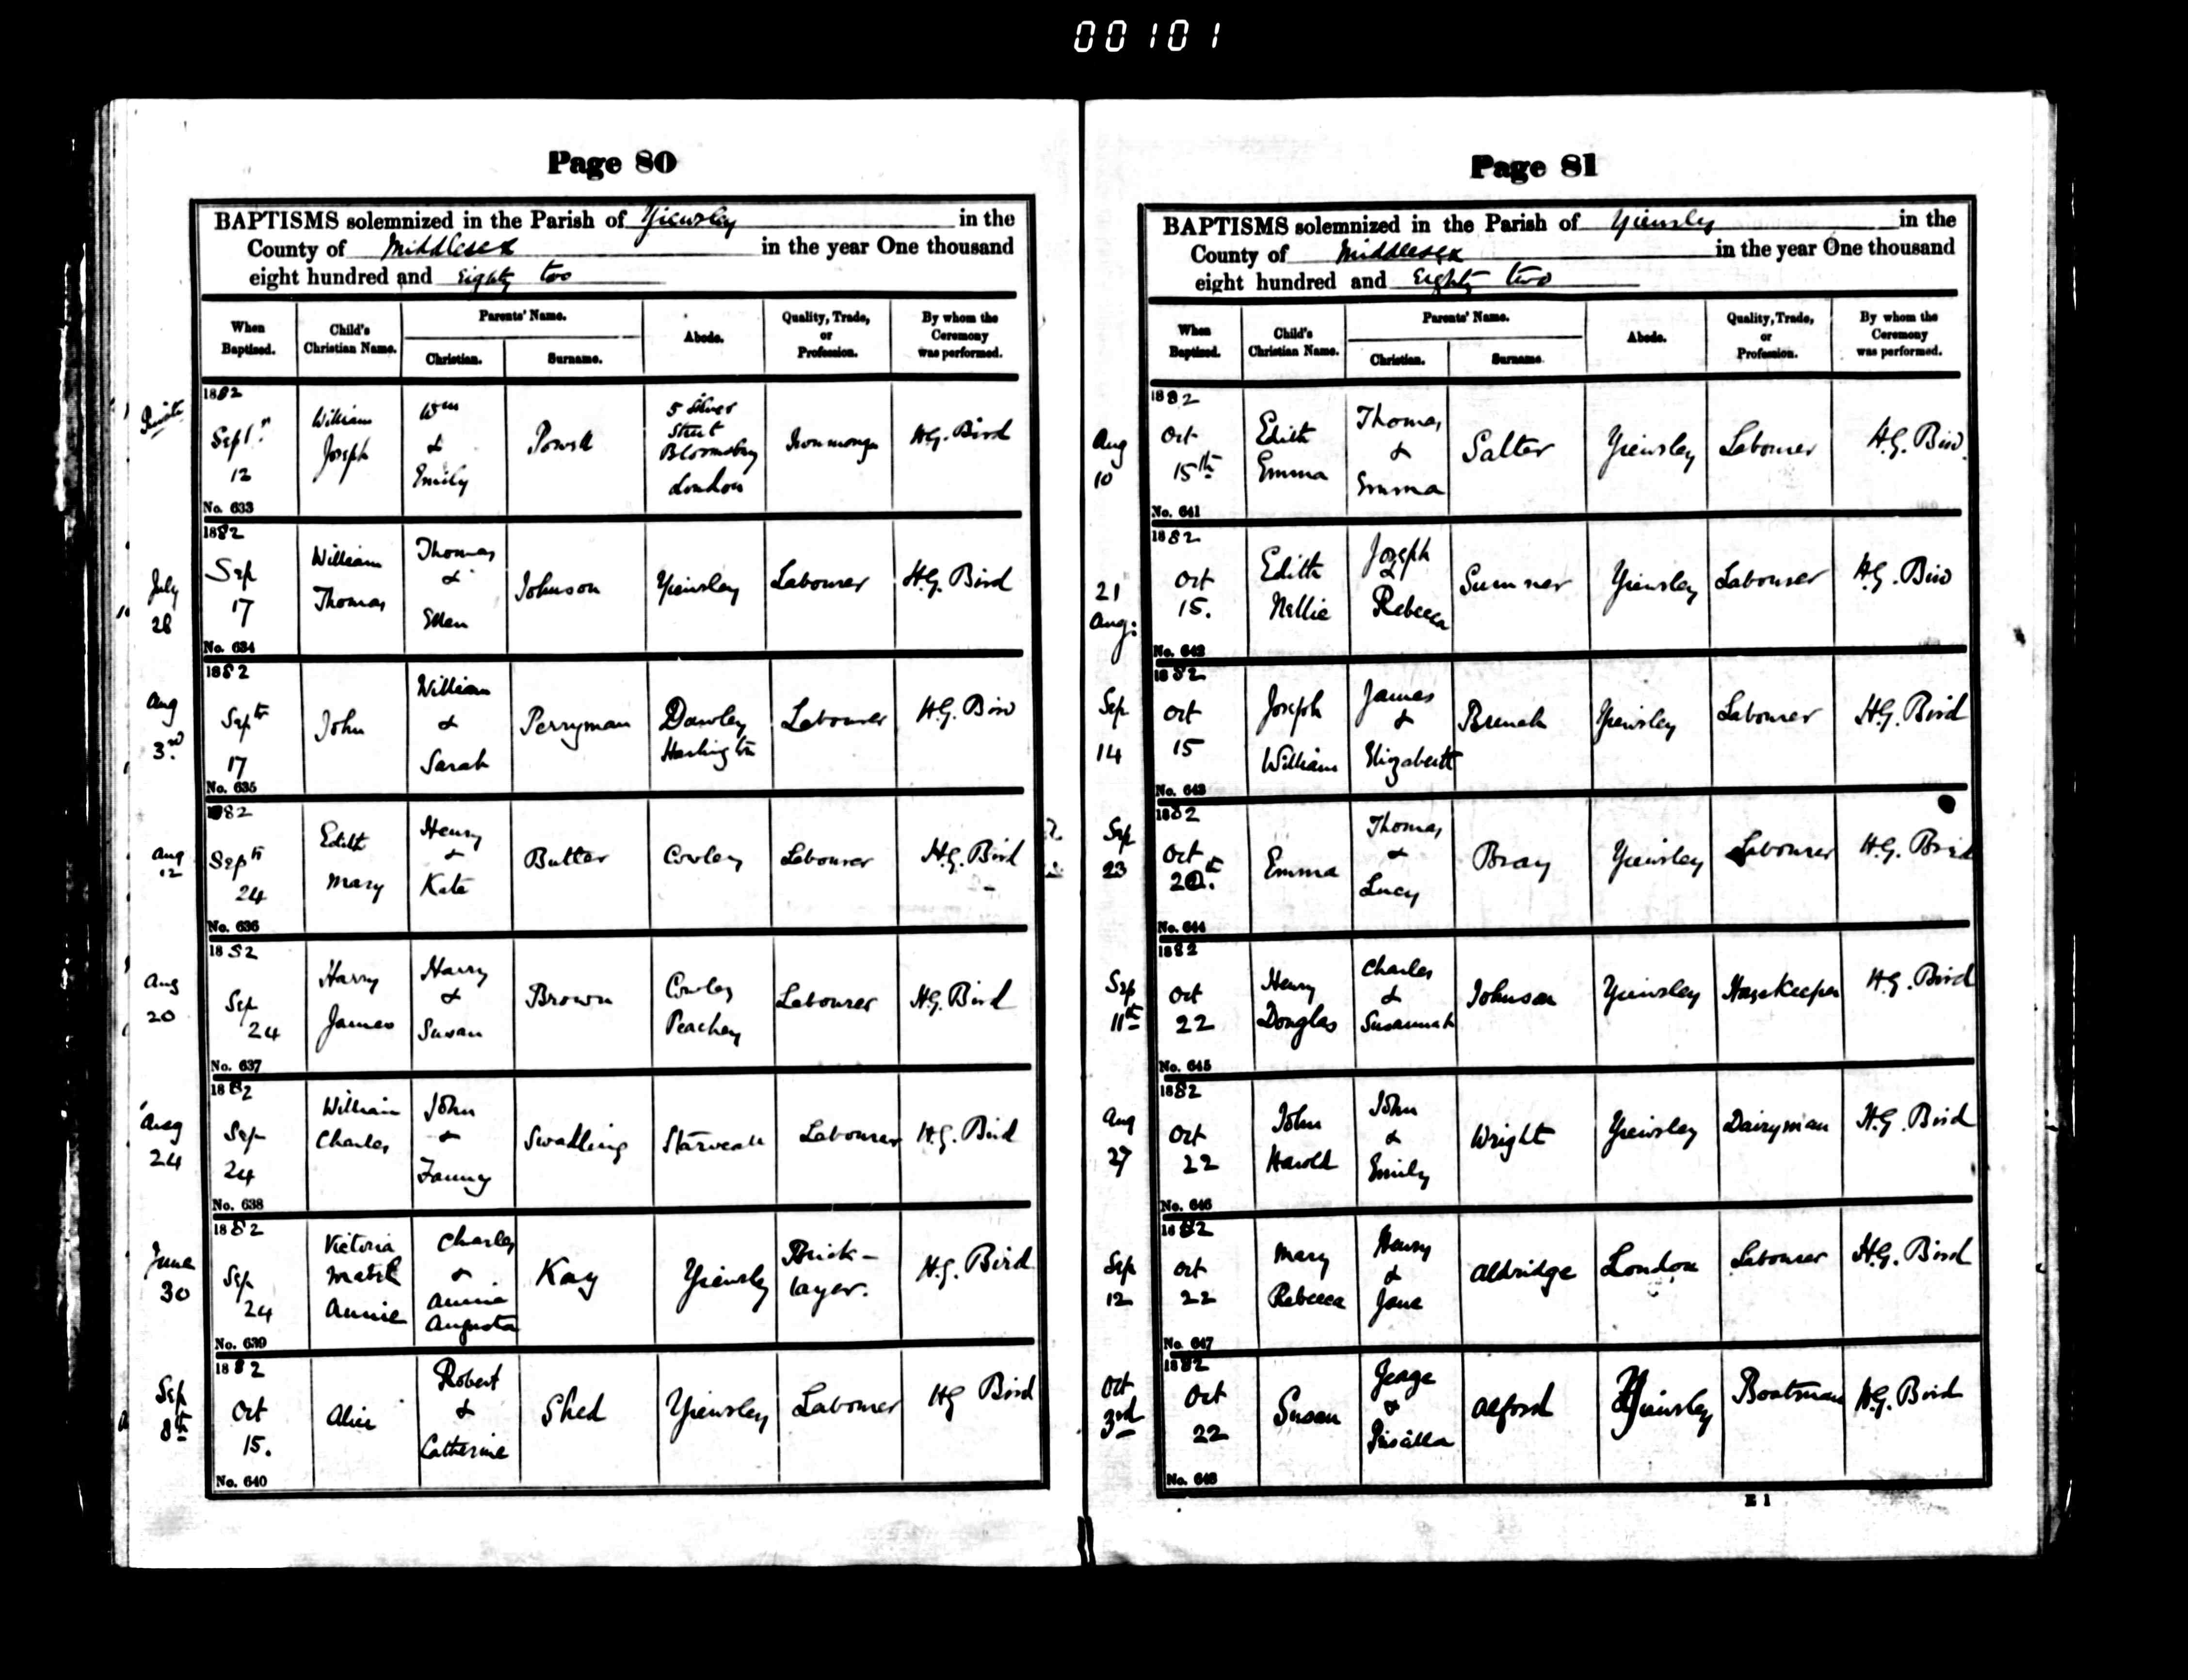 00101
Page 80
BAPTISMS solemnized in the Parish of Yiewsley in the
County of Middlesex in the year One thousand
eight hundred and Eighty two
When Baptized. Child's Christian Name. Parents' Name. Christian. Surname. Abode. Quality, Trade, or Profession. By whom the Ceremony was performed.
Private
1882 Sept. 12 William Joseph Wm & Emily Powell 5 Silver Street Bloomsbury London Ironmonger H.G. Bird
No. 633
July 28
1882 Sep 17 William Thomas Thomas & Ellen Johnson Yiewsley Labourer H.G. Bird
No. 634
Aug 3rd
1882 Septr 17 John William & Sarah Perryman Dawley Harlington Labourer H.G. Bird
No. 635
Aug 12
1882 Septr 24 Edith Mary Henry & Kate Butler Cowley Labourer H.G. Bird
No. 636
Aug 20
1882 Sep 24 Harry James Harry & Susan Brown Cowley Peachey Labourer H.G. Bird
No. 637
Aug 24
1882 Sep 24 William Charles John & Fanny Swadling Starveall Labourer H.G. Bird
No. 638
June 30
1882 Sep 24 Victoria Matil Annie Charles & Annie Augusta Kay Yiewsley Brick-layer. H.G. Bird
No. 639
Sep 8th
1882 Oct 15. Alice Robert & Catherine Shed Yiewsley Labourer HG Bird
No. 640
Page 81
BAPTISMS solemnized in the Parish of Yiewsley in the
County of Middlesex in the year One thousand
eight hundred and Eighty two
When Baptized. Child's Christian Name. Parents' Name. Christian. Surname. Abode. Quality, Trade, or Profession. By whom the Ceremony was performed.
Aug 10
1882 Oct 15th Edith Emma Thomas & Emma Salter Yiewsley Labourer H.G. Bird
No. 641
21 Aug:
1882 Oct 15. Edith Nellie Joseph & Rebecca Sumner Yiewsley Labourer H.G. Bird
No. 642
Sep 14
1882 Oct 15 Joseph William James & Elizabeth Yiewsley Labourer H.G. Bird
No. 643
Sep 23
1882 Oct Emma Thomas & Lucy Bray Yiewsley Labourer H.G. Bird
No. 644
Sep 11th
1882 Oct 22 Henry Douglas Charles & Susannah Johnson Yiewsley H.G. Bird
No. 645
Aug 27
1882 Oct 22 John Harold John & Emily Wright Yiewsley Dairyman H.G. Bird
No. 646
Sep 12
1882 Oct 22 Mary Rebecca Henry & Jane Aldridge London Labourer H.G. Bird
No. 647
Oct 3rd
1882 Oct 22 Susan George & Priscilla Alford Yiewsley Boatman H.G. Bird
No. 648
E 1